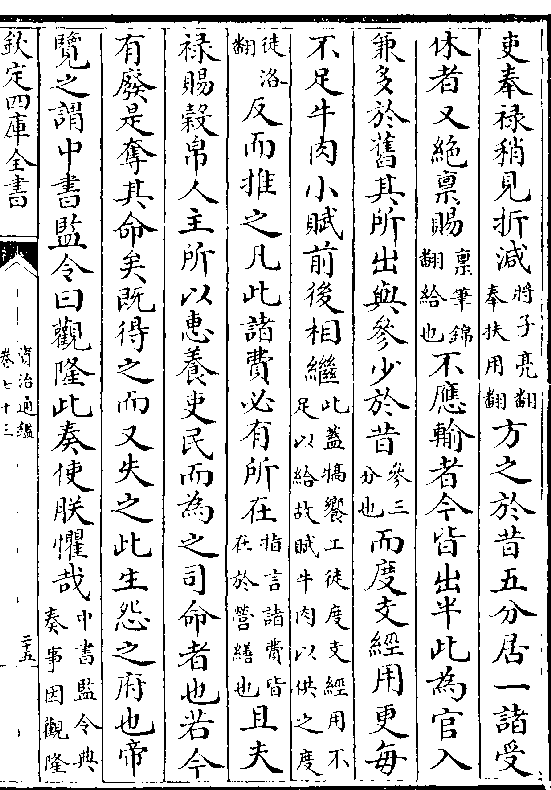 吏奉禄稍見折減將子亮翻奉扶用翻方之於昔五分居一諸受
休者又絶稟賜稟筆錦翻給也不應輸者今皆出半此為官入
兼多於舊其所出與參少於昔參三分也而度支經用更每
不足牛肉小賦前後相繼此蓋犒饗工徒度支經用不足以給故賦牛肉以供之度
徒洛翻反而推之凡此諸費必有所在指言諸費皆在於營繕也且夫
禄賜穀帛人主所以惠養吏民而為之司命者也若今
有廢是奪其命矣既得之而又失之此生怨之府也帝
覽之謂中書監令曰觀隆此奏使朕懼哉中書監令典奏事因觀隆
欽定四庫全書
資治通鑑
卷七十三
二十五